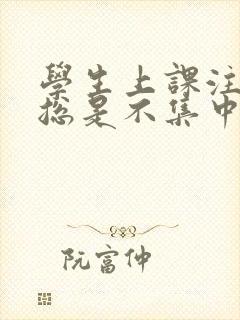 學生上課注
總是不集中
阮富仲